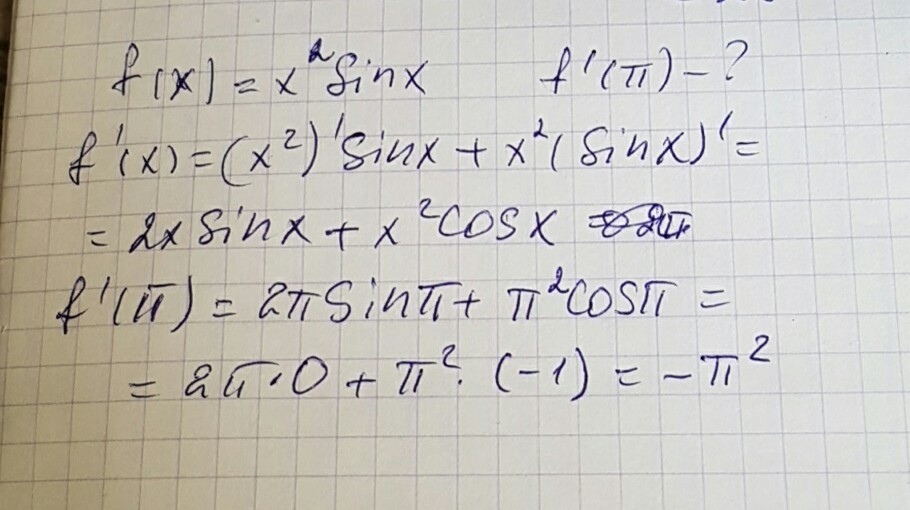 f(x) = x² sinx f'(π) - ?
f'(x) = (x²)' sinx + x² (sinx)' =
= 2x sinx + x² cosx
f'(π) = 2π sinπ + π² cosπ =
= 2π·0 + π² · (-1) = -π²